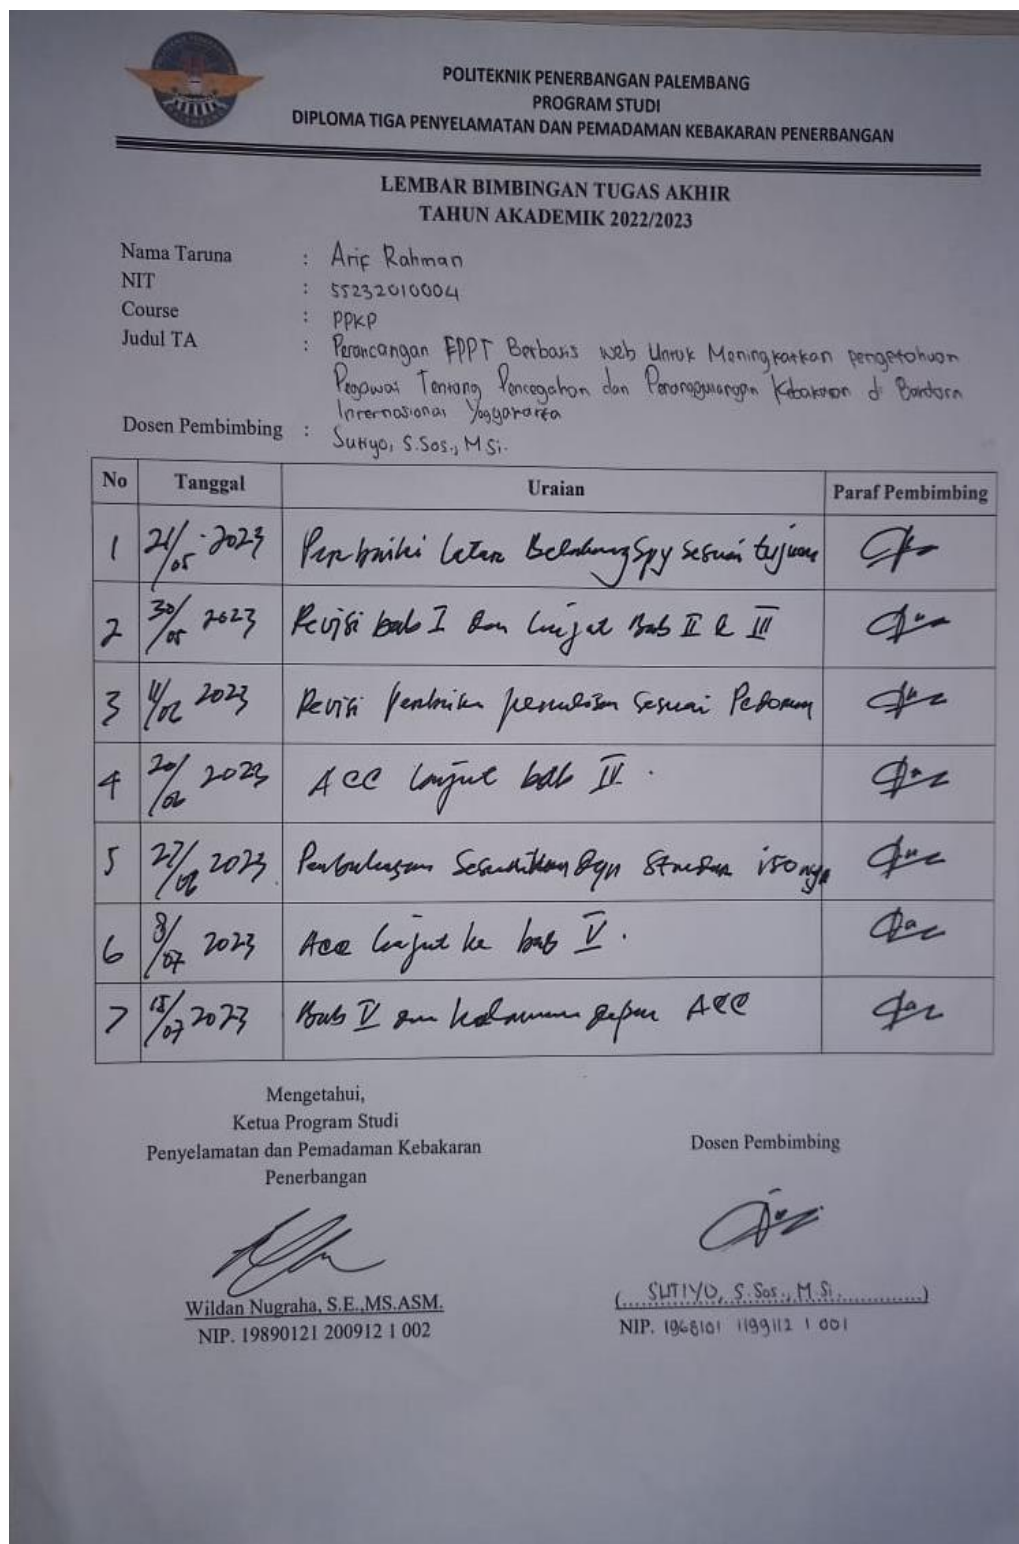 POLITEKNIK PENERBANGAN PALEMBANG
PROGRAM STUDI
DIPLOMA TIGA PENYELAMATAN DAN PEMADAMAN KEBAKARAN PENERBANGAN
LEMBAR BIMBINGAN TUGAS AKHIR
TAHUN AKADEMIK 2022/2023
Nama Taruna : Arif Rahman
NIT : 55232010004
Course : PPKP
Judul TA : Perancangan FPPT Berbasis Web Untuk Meningkatkan pengetahuan
Pegawai Tentang Pencegahan dan Penanggulangan Kebakaran di Bandara
Internasional Yogyakarta
Dosen Pembimbing : Sutiyo, S.Sos., M Si.
No Tanggal Uraian Paraf Pembimbing
1 /05 - 2023 Perbaiki Latar Belakang Spy sesuai tujuan
2 30/05 2023 Revisi bab I dan lanjut Bab II & III
3 11/06 2023 Revisi penulisan sesuai Pedoman
4 20/06 2023 ACC lanjut bab IV.
5 27/06 2023 Pembahasan
6 8/07 2023 Acc lanjut ke bab V.
7 /07 2023 Bab V ACC
Mengetahui,
Ketua Program Studi
Penyelamatan dan Pemadaman Kebakaran
Penerbangan
Dosen Pembimbing
Wildan Nugraha, S.E.,MS.ASM.
NIP. 19890121 200912 1 002
(SUTIYO, S.Sos., M.Si.)
NIP. 1968101 1199112 1 001